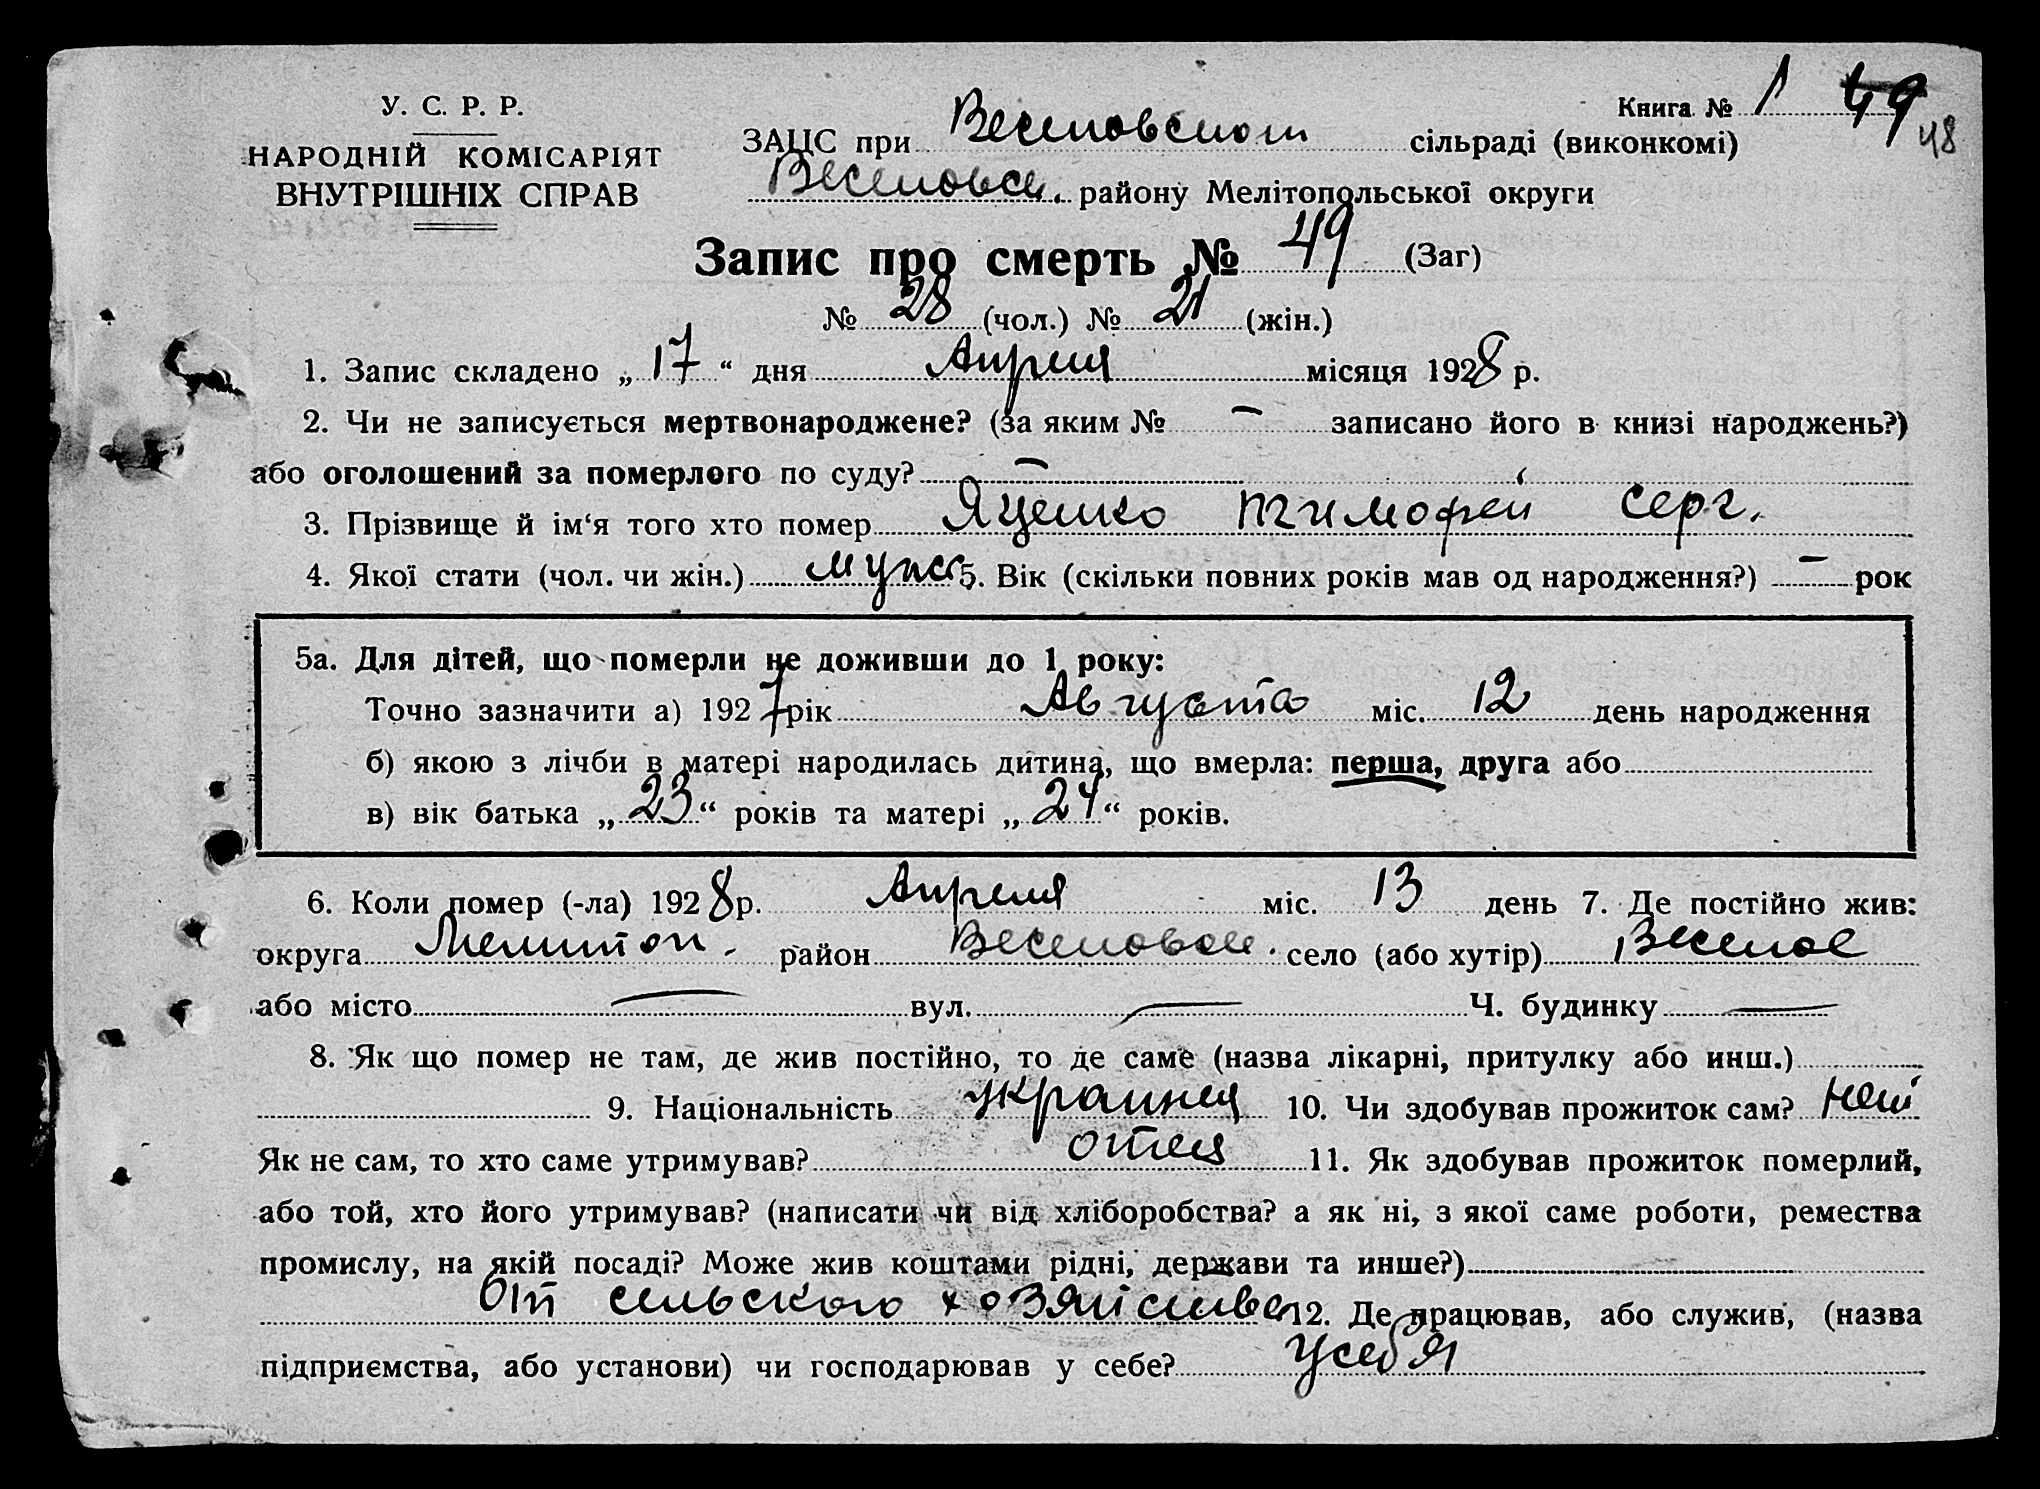 У. С. Р. Р.
НАРОДНІЙ КОМІСАРІЯТ
ВНУТРІШНІХ СПРАВ
Книга № 1 49
48
ЗАЦС при Веселовском сільраді (виконкомі)
Веселовск. району Мелітопольської округи
Запис про смерть № 49 (Заг)
№ 28 (чол.) № 21 (жін.)
1. Запис складено „17“ дня Апреля місяця 1928 р.
2. Чи не записується мертвонароджене? (за яким № — записано його в книзі народжень?)
або оголошений за померлого по суду? —
3. Прізвище й ім‘я того хто помер Яценко Тимофей Серг.
4. Якої стати (чол. чи жін.) мужс 5. Вік (скільки повних років мав од народження?) — рок
5а. Для дітей, що померли не доживши до 1 року:
Точно зазначити а) 1927 рік Августа міс. 12 день народження
б) якою з лічби в матері народилась дитина, що вмерла: перша, друга або
в) вік батька „23“ років та матері „21“ років.
6. Коли помер (-ла) 1928 р. Апреля міс. 13 день 7. Де постійно жив:
округа Мелитоп. район Веселовск. село (або хутір) Веселое
або місто — вул. — Ч. будинку —
8. Як що помер не там, де жив постійно, то де саме (назва лікарні, притулку або инш.)
9. Національність украинец 10. Чи здобував прожиток сам? нет
Як не сам, то хто саме утримував? отец 11. Як здобував прожиток померлий,
або той, хто його утримував? (написати чи від хліборобства? а як ні, з якої саме роботи, ремества
промислу, на якій посаді? Може жив коштами рідні, держави та инше?)
От сельского хозяйства 12. Де працював, або служив, (назва
підприємства, або установи) чи господарював у себе? У себя